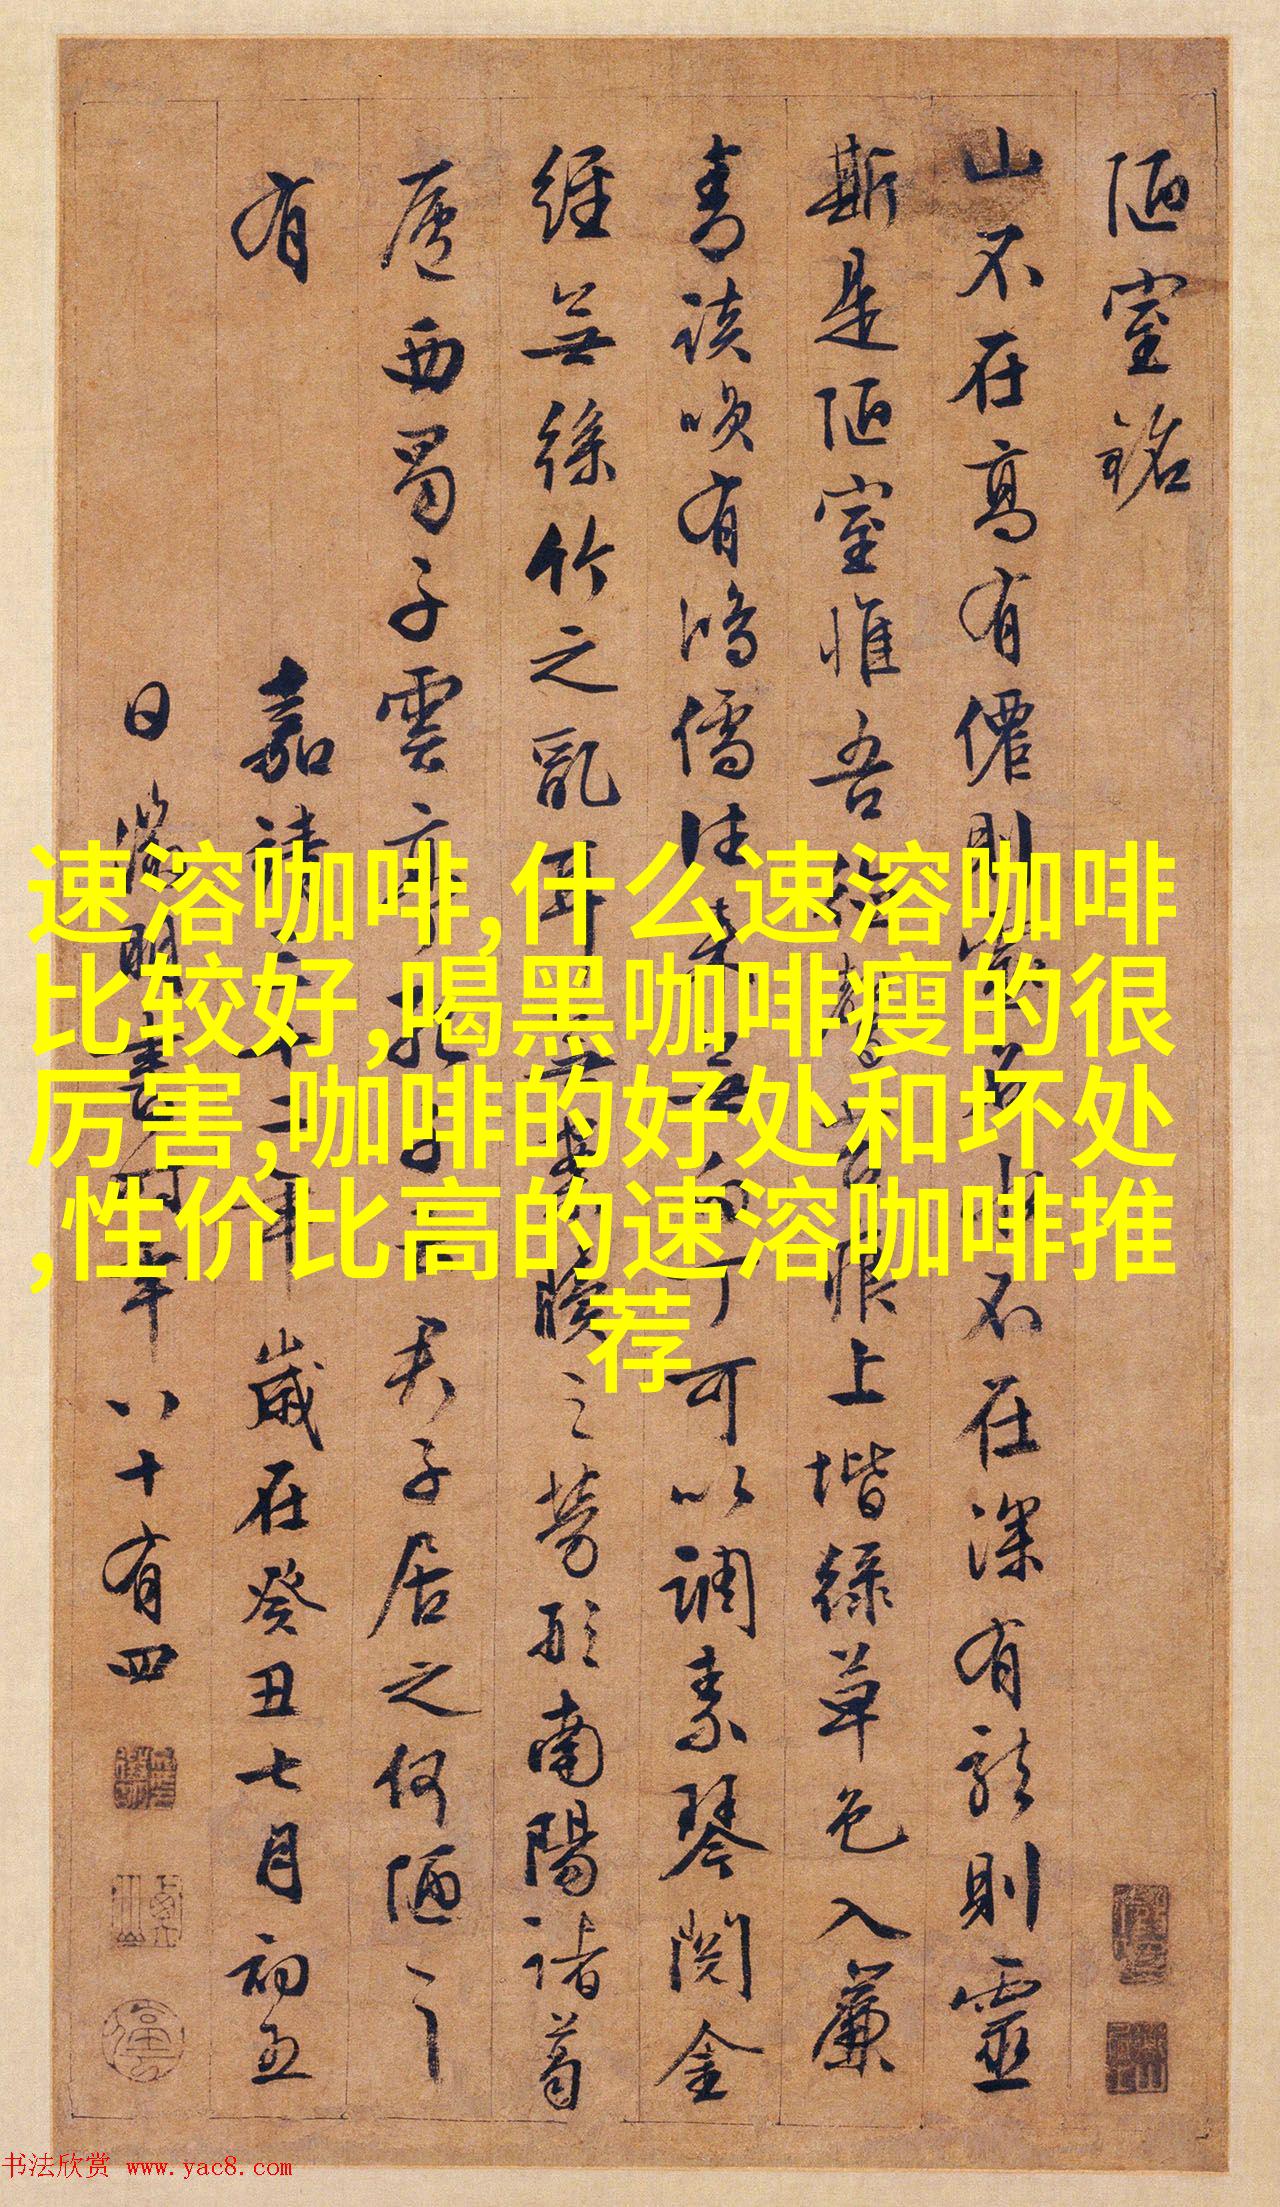 陋室銘
山不在高有僊則名水不在深有龍則靈
斯是陋室惟吾德馨苔痕上堦緑草色入簾
青談咲有鴻儒往來無白丁可以調素琴閱金
經無絲竹之亂耳無案牘之勞形南陽諸葛
廬西蜀子雲亭孔子云君子居之何陋之
有 嘉靖三十二年歲在癸丑七月初五
日徵明書時年八十有四
速溶咖啡,什么速溶咖啡
比较好,喝黑咖啡瘦的很
厉害,咖啡的好处和坏处
,性价比高的速溶咖啡推
荐
书法欣赏 www.yac8.com